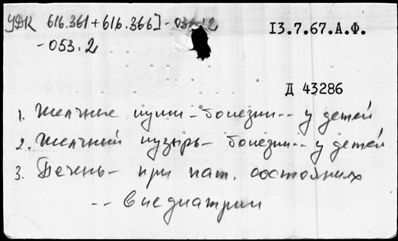 УДК 616.361+616.366]-053.2
13.7.67.А.Ф.
-053.2
Д 43286
1. Желчные пути-болезни-- у детей
2. Желчный пузырь-болезни-- у детей
3. Печень- при пат. состояниях
-- в педиатрии